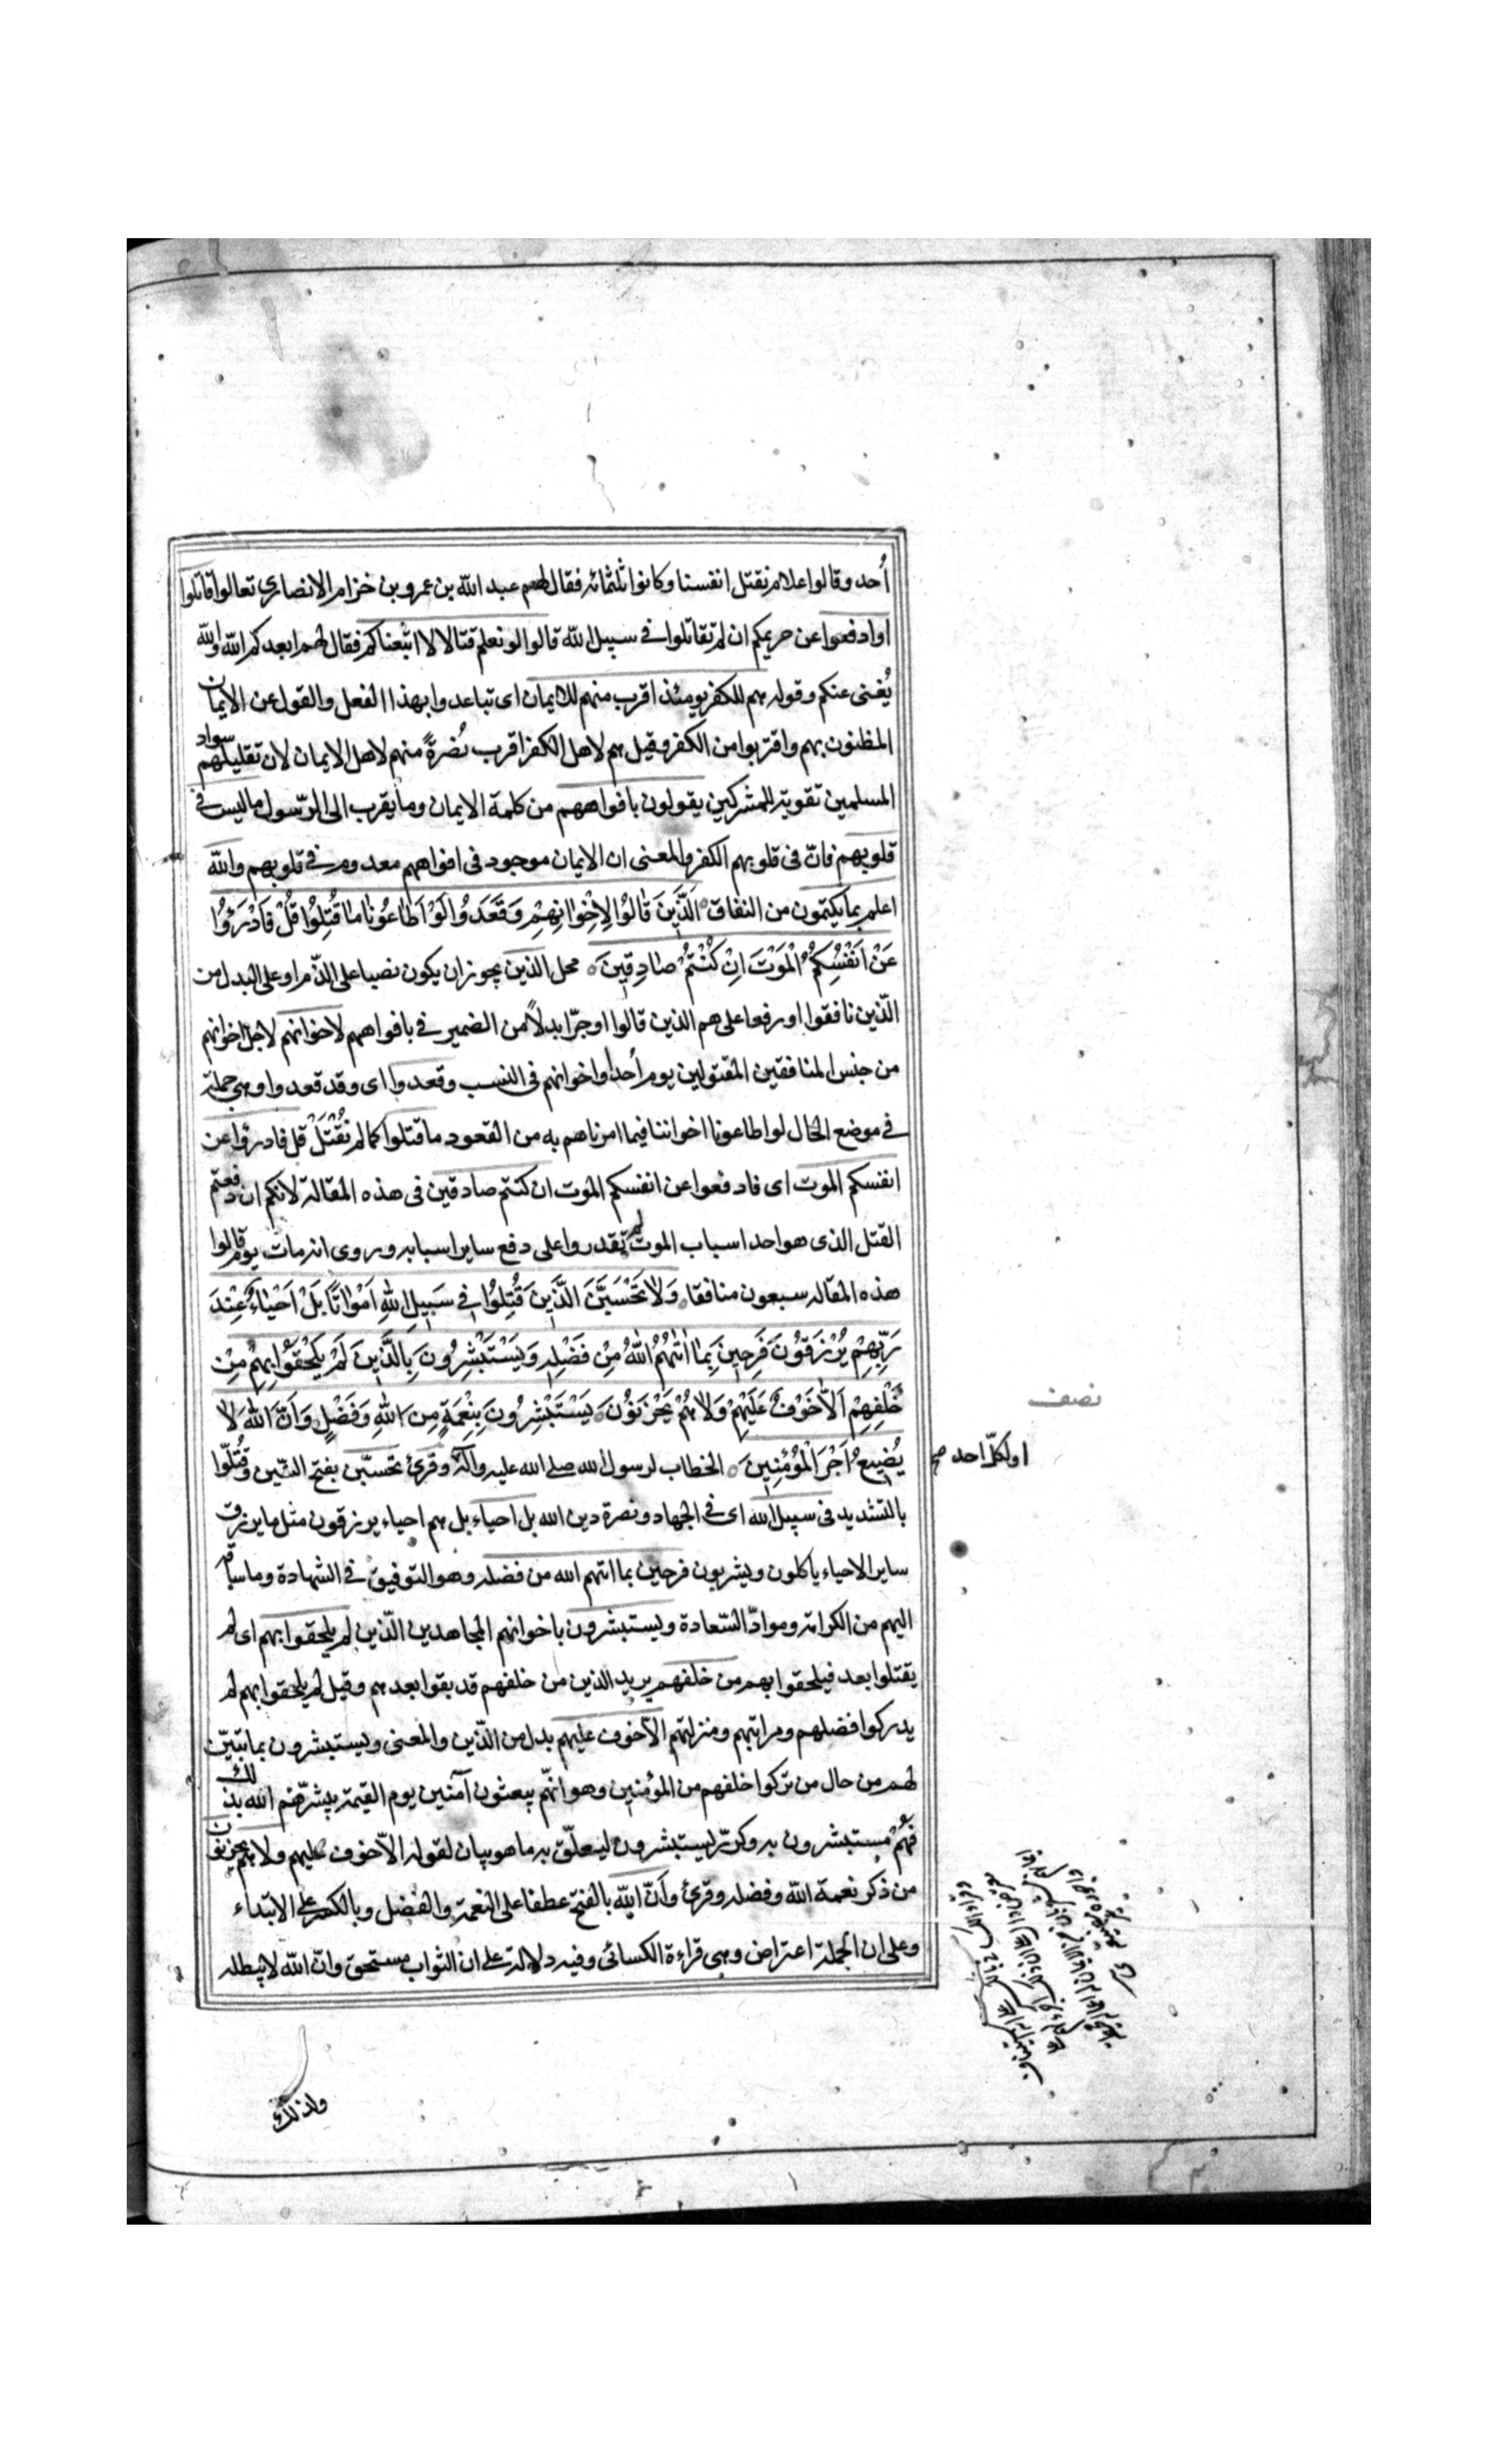 أُحد وقالوا علام نقتل انفسنا وكانوا ثلثمائه فقال لهم عبد الله بن عمرو بن خزام الانصاري تعالوا قاتلوا
او ادفعوا عن حريمكم ان لم تقاتلوا في سبيل الله قالوا لو نعلم قتالا لا اتبعناكم فقال لهم ابعدكم الله والله
يُغنى عنكم وقوله هم للكفر يومئذ اقرب منهم للايمان اى تباعدوا بهذا الفعل والقول عن الايمان
المظنون بهم واقتربوا من الكفر وقيل هم لاهل الكفر اقرب نُصرةً منهم لاهل الايمان لان تقليلهم سواد
المسلمين تقوية للمشركين يقولون بافواههم من كلمة الايمان وما يقرب الى الرّسول ما ليس في
قلوبهم فانّ في قلوبهم الكفر والمعنى ان الايمان موجود في افواههم معدوم في قلوبهم والله
اعلم بما يكتمون من النفاق اَلَّذَينَ قالُوا لِاِخْوانِهِمْ وَقَعَدُوا لَوْ اَطاعُونا ما قُتِلُوا قُلْ فَادْرَؤُا
عَنْ اَنْفُسِكُمُ الْمَوْتَ اِنْ كُنْتُمْ صادِقينَ محل الذين يجوز ان يكون نصبا على الذّم او على البدل من
الّذين نافقوا او رفعا على هم الذين قالوا او جرّا بدلاً من الضمير في بافواههم لاخوانهم لاجل اخوانهم
من جنس المنافقين المقتولين يوم أحد او اخوانهم في النسب وقعدوا اى وقد قعدوا وهي جملة
في موضع الحال لو اطاعونا اخواننا فيما امرناهم به من القعود ما قتلوا كما لم نُقْتَلْ قل فادرؤا عن
انفسكم الموت اى فادفعوا عن انفسكم الموت ان كنتم صادقين في هذه المقالة لانكم ان دفعتم
القتل الذى هو احد اسباب الموت لم تقدروا على دفع ساير اسبابه وروى انه مات يوم قالوا
هذه المقاله سبعون منافقا وَلا تَحْسَبَنَّ الَّذَينَ قُتِلُوا في سَبيلِ اللهِ اَمْواتًا بَلْ اَحْياءٌ عِنْدَ
رَبِّهِمْ يُرْزَقُونَ فَرِحينَ بِما اتٰهُمُ اللهُ مِنْ فَضْلِهِ وَيَسْتَبْشِرُونَ بِالَّذَينَ لَمْ يَلْحَقُوا بِهِمْ مِنْ
خَلْفِهِمْ اَلاَّ خَوْفٌ عَلَيْهِمْ وَلا هُمْ يَحْزَنُونَ يَسْتَبْشِرُونَ بِنِعْمَةٍ مِنَ اللهِ وَفَضْلٍ وَاَنَّ اللهَ لا
يُضيعُ اَجْرَ الْمُؤْمِنينَ الخطاب لرسول الله صلى الله عليه وآله وقرئ تحسبّن بفتح السّين وقُتّلوا
بالتشديد في سبيل الله اى في الجهاد ونصرة دين الله بل احياء بل هم احياء يرزقون مثل ما يرزق
ساير الاحياء ياكلون ويشربون فرحين بما اتيهم الله من فضله وهو التوفيق في الشهادة وما ساق
اليهم من الكرامة وموادّ السّعادة ويستبشرون باخوانهم المجاهدين الّذين لم يلحقوا بهم اى لم
يقتلوا بعد فيلحقوا بهم من خلفهم يريد الذين من خلفهم قد بقوا بعدهم وقيل لم يلحقوا بهم لم
يدركوا فضلهم ومراتبهم ومنزلتهم الاّ خوف عليهم بدل من الذّين والمعنى ويستبشرون بما تبيّن
لهم من حال من تركوا خلفهم من المؤمنين وهو انهّم يبعثون آمنين يوم القيمة بشّرهم الله بذلك
فهُمْ مستبشرون به وكرّر يستبشرون ليتعلّق به ما هو بيان لقوله الاّ خوف عليهم ولا هم يحزنون
من ذكر نعمة الله وفضله وقرئ وأنّ الله بالفتح عطفا على النعمة والفضل وبالكسر على الابتداء
وعلى ان الجملة اعتراض وهي قراءة الكسائى وفيه دلالة على ان الثواب مستحق وانّ الله لا يبطله
نصف
او لكلّ احد صح
وان ذلك